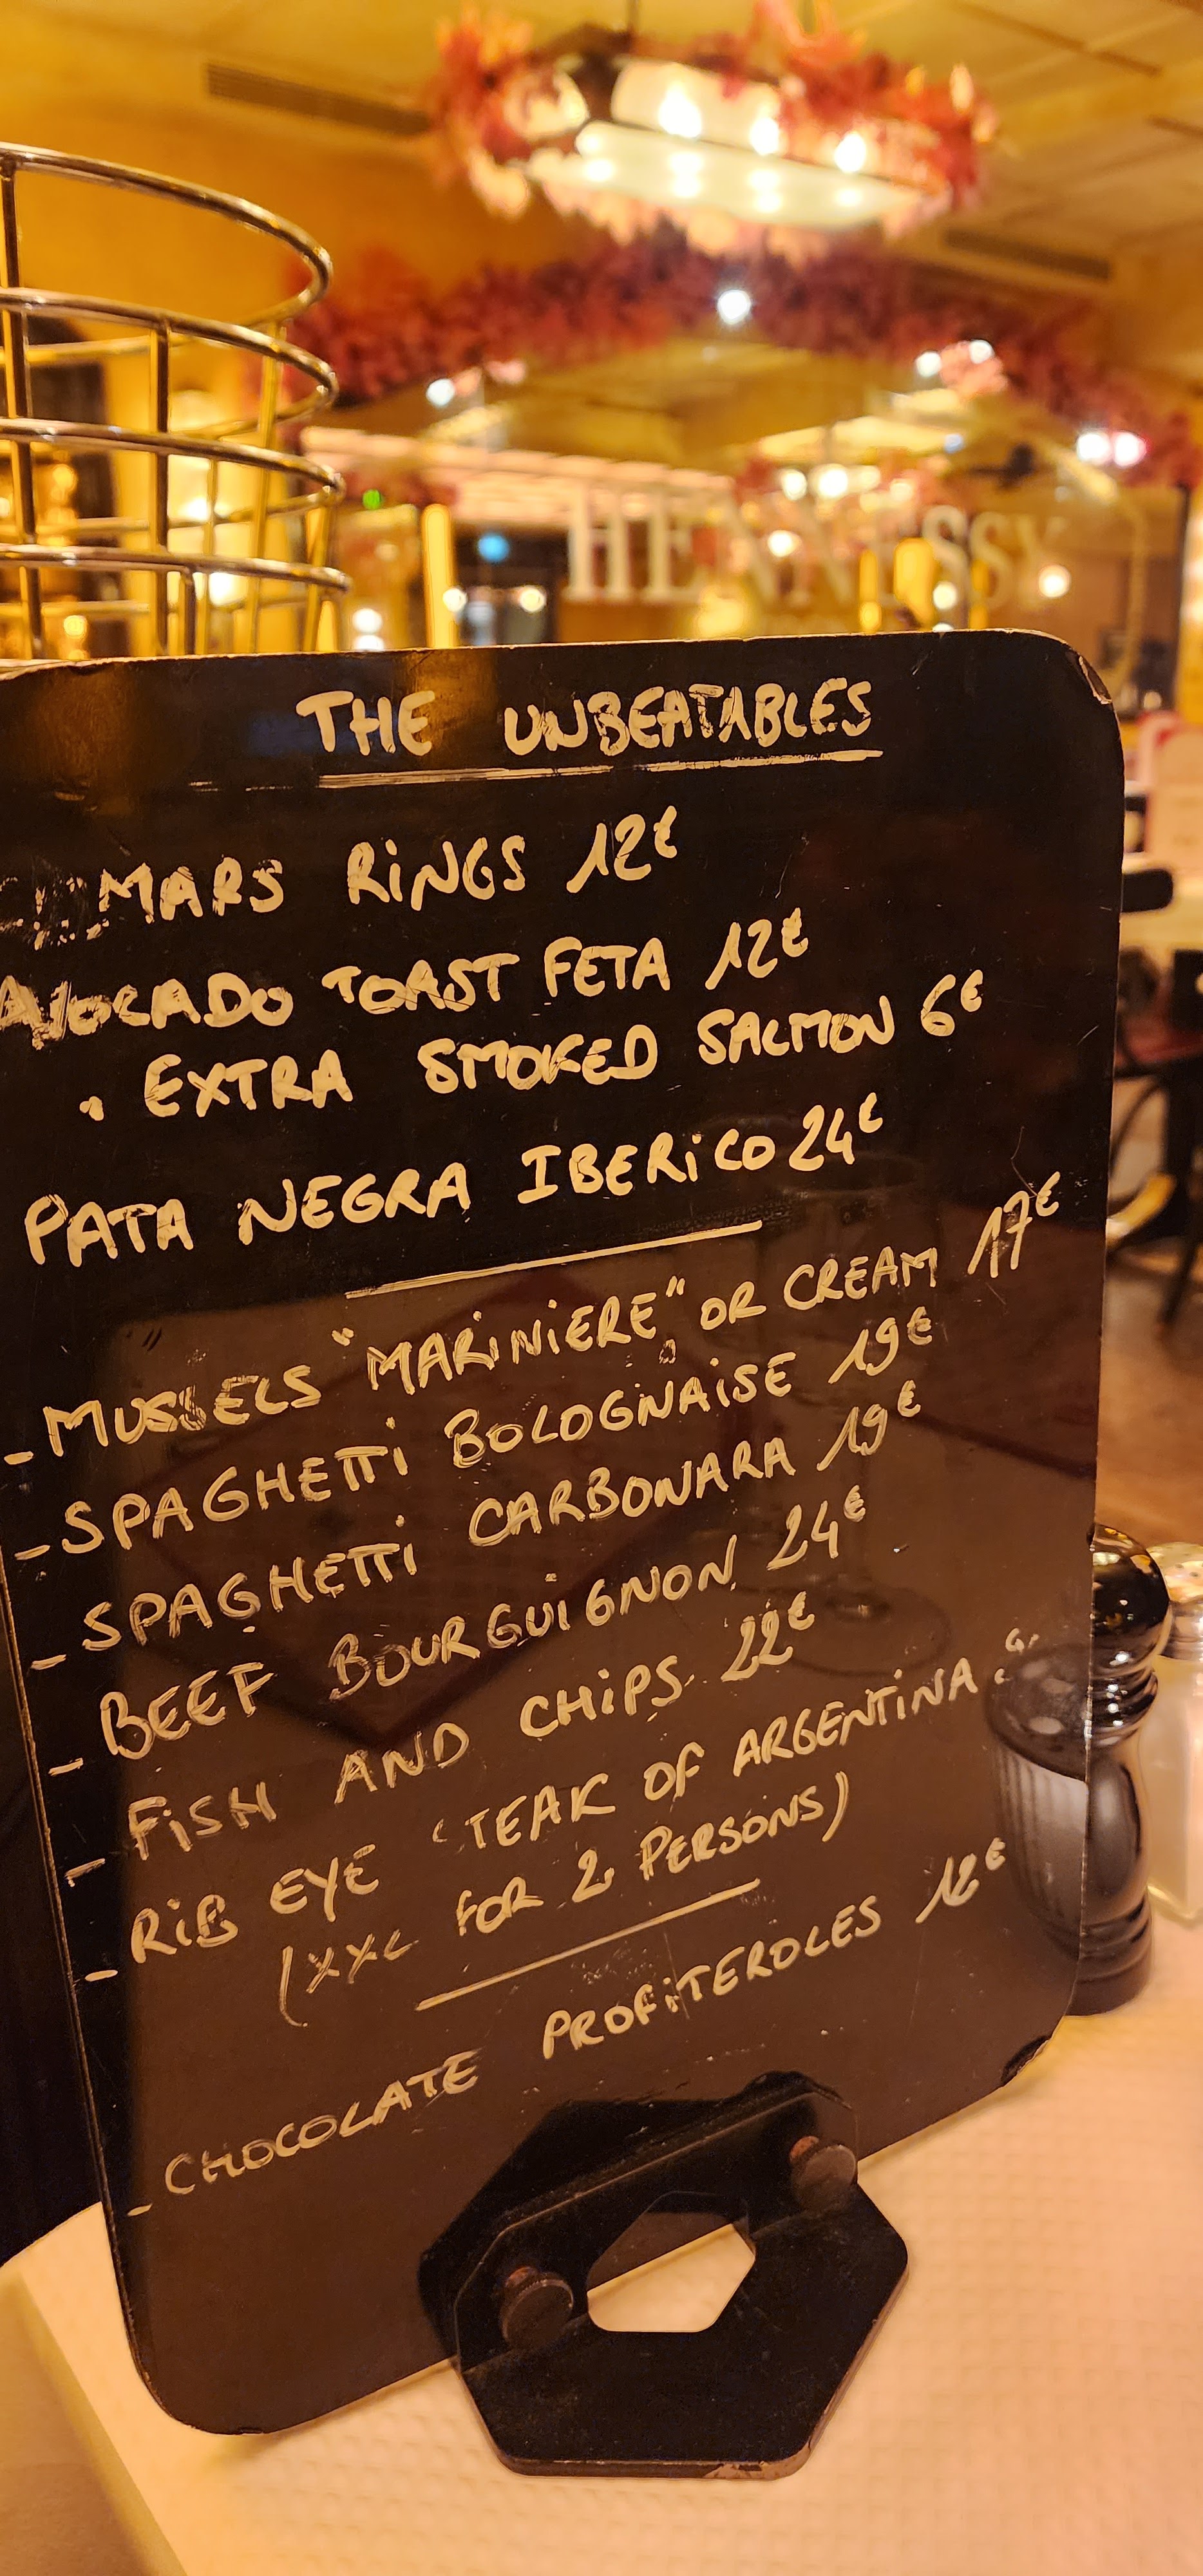 HENNESSY
THE UNBEATABLES
MARS RiNGS 12€
AVOCADO TOAST FETA 12€
. EXTRA SMOKED SALMON 6€
PATA NEGRA IBERiCO 24€
- MUSSELS "MARiNiERE" OR CREAM 17€
- SPAGHETTi BOLOGNAiSE 19€
- SPAGHETTi CARBONARA 19€
- BEEF BOURGUiGNON 24€
- FiSH AND CHiPS 22€
- RiB EYE STEAK OF ARGENTiNA
(XXL FOR 2 PERSONS)
- CHOCOLATE PROFiTEROLES 12€